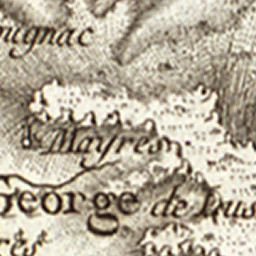 nignac
Mayres
George de Lus
rés